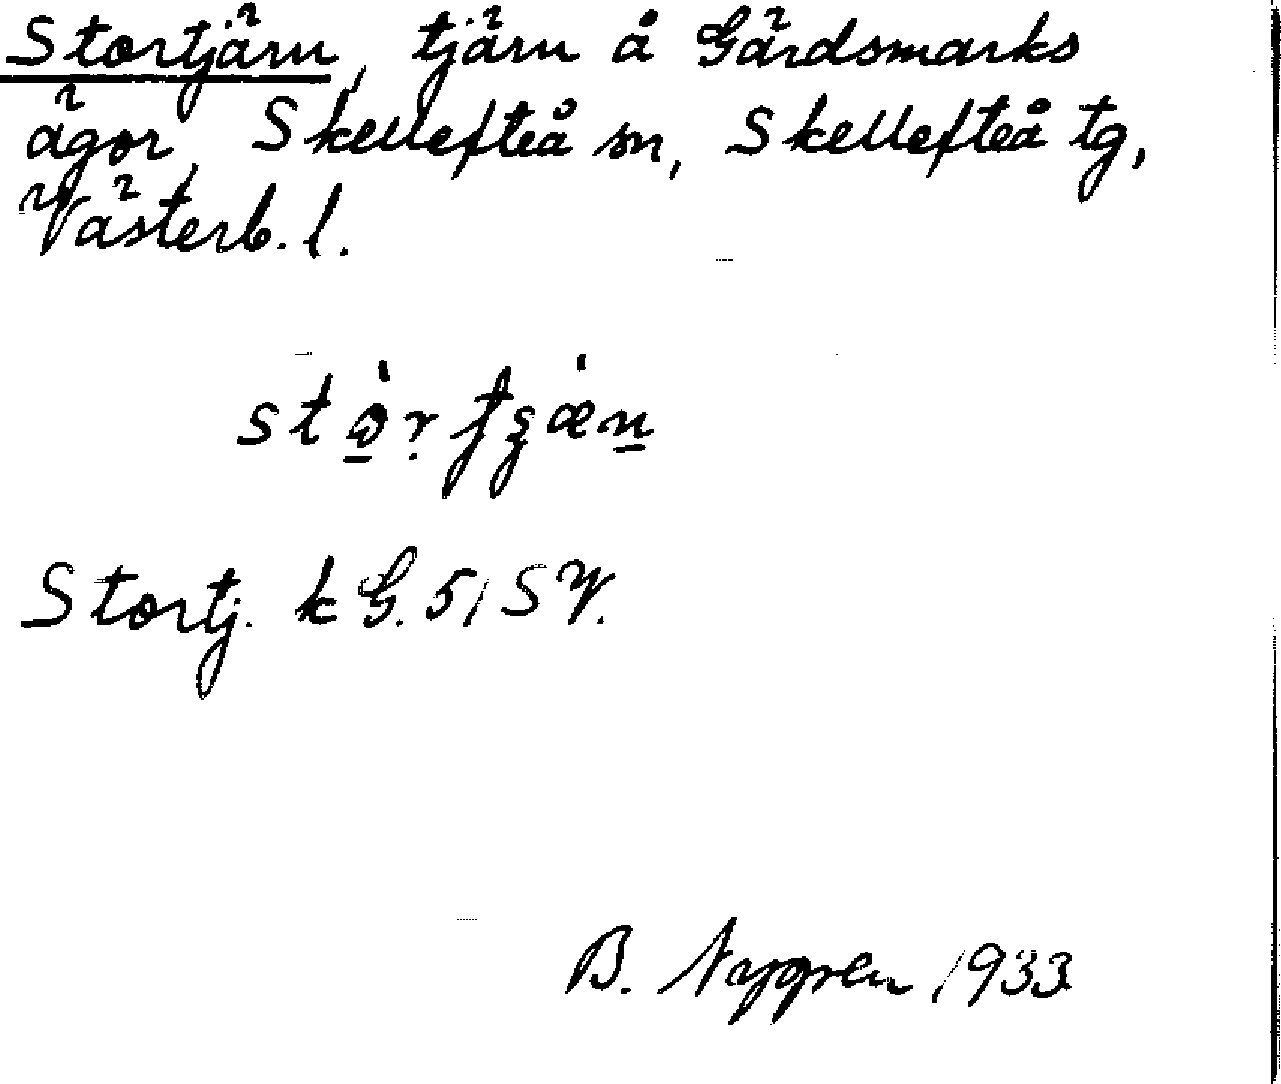 Stortjärn, tjärn å Gärdsmarks
ägor, Skellefteå sn, Skellefteå tg,
Västerb. l.
Stortj. k G. 51 SV.
B. Nygren 1933